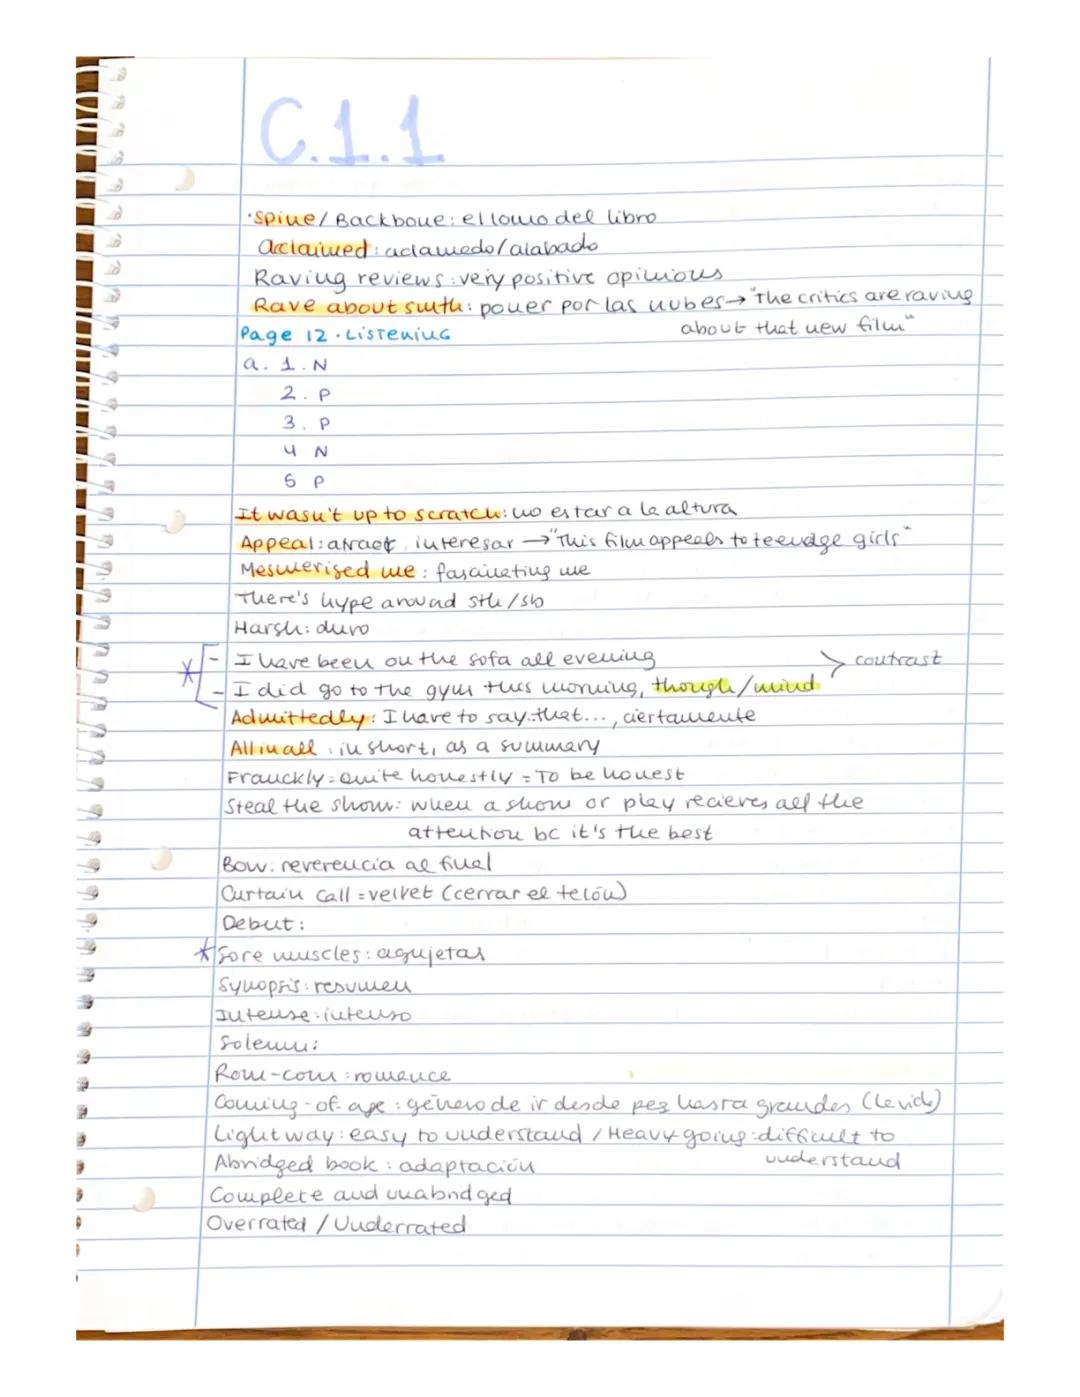 C.1.1
·Spine/Backbone: el lomo del libro
Acclaimed: aclamedo/alabado
Raving reviews: very positive opinions
Rave about smth: poner por las nubes → "The critics are raving
about that new film"
Page 12 · Listening
a. 1. N
2. P
3. P
4 N
5 P
It wasn't up to scratch: no estar a la altura
Appeal: atract, interesar → "This film appeals to teenage girls"
Mesmerised me: fascinating me
There's hype around sth/sb
Harsh: duro
* - I have been on the sofa all evening
- I did go to the gym this morning, though/mind > contrast
Admittedly: I have to say that..., ciertamente
All in all: in short, as a summary
Franckly = Quite honestly = To be honest
Steal the show: when a show or play recieves all the
attention bc it's the best
Bow: reverencia al final
Curtain call = velvet (cerrar el telón)
Debut:
* Sore muscles: agujetas
Synopsis: resumen
Intense: intenso
Solemn:
Rom-com: romance
Coming-of-age: género de ir desde peq hasta grandes (la vida)
Light way: easy to understand / Heavy going: difficult to
understand
Abridged book: adaptación
Complete and unabridged
Overrated / Underrated